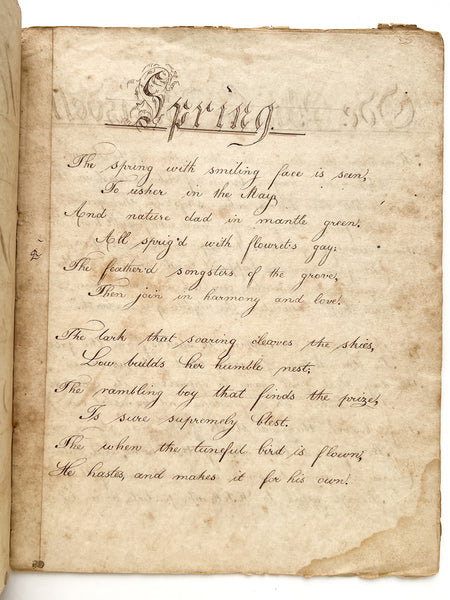 Spring.
The spring with smiling face is seen,
To usher in the May,
And nature clad in mantle green.
All sprig'd with flowrets gay;
The feather'd songsters of the grove,
Then join in harmony and love.
The lark that soaring cleaves the skies,
Low builds her humble nest;
The rambling boy that finds the prize,
Is sure supremely blest.
The when the tuneful bird is flown,
He hastes, and makes it for his own.